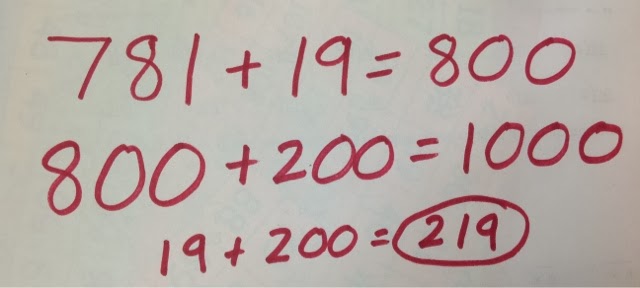 781 + 19 = 800
800 + 200 = 1000
19 + 200 = 219